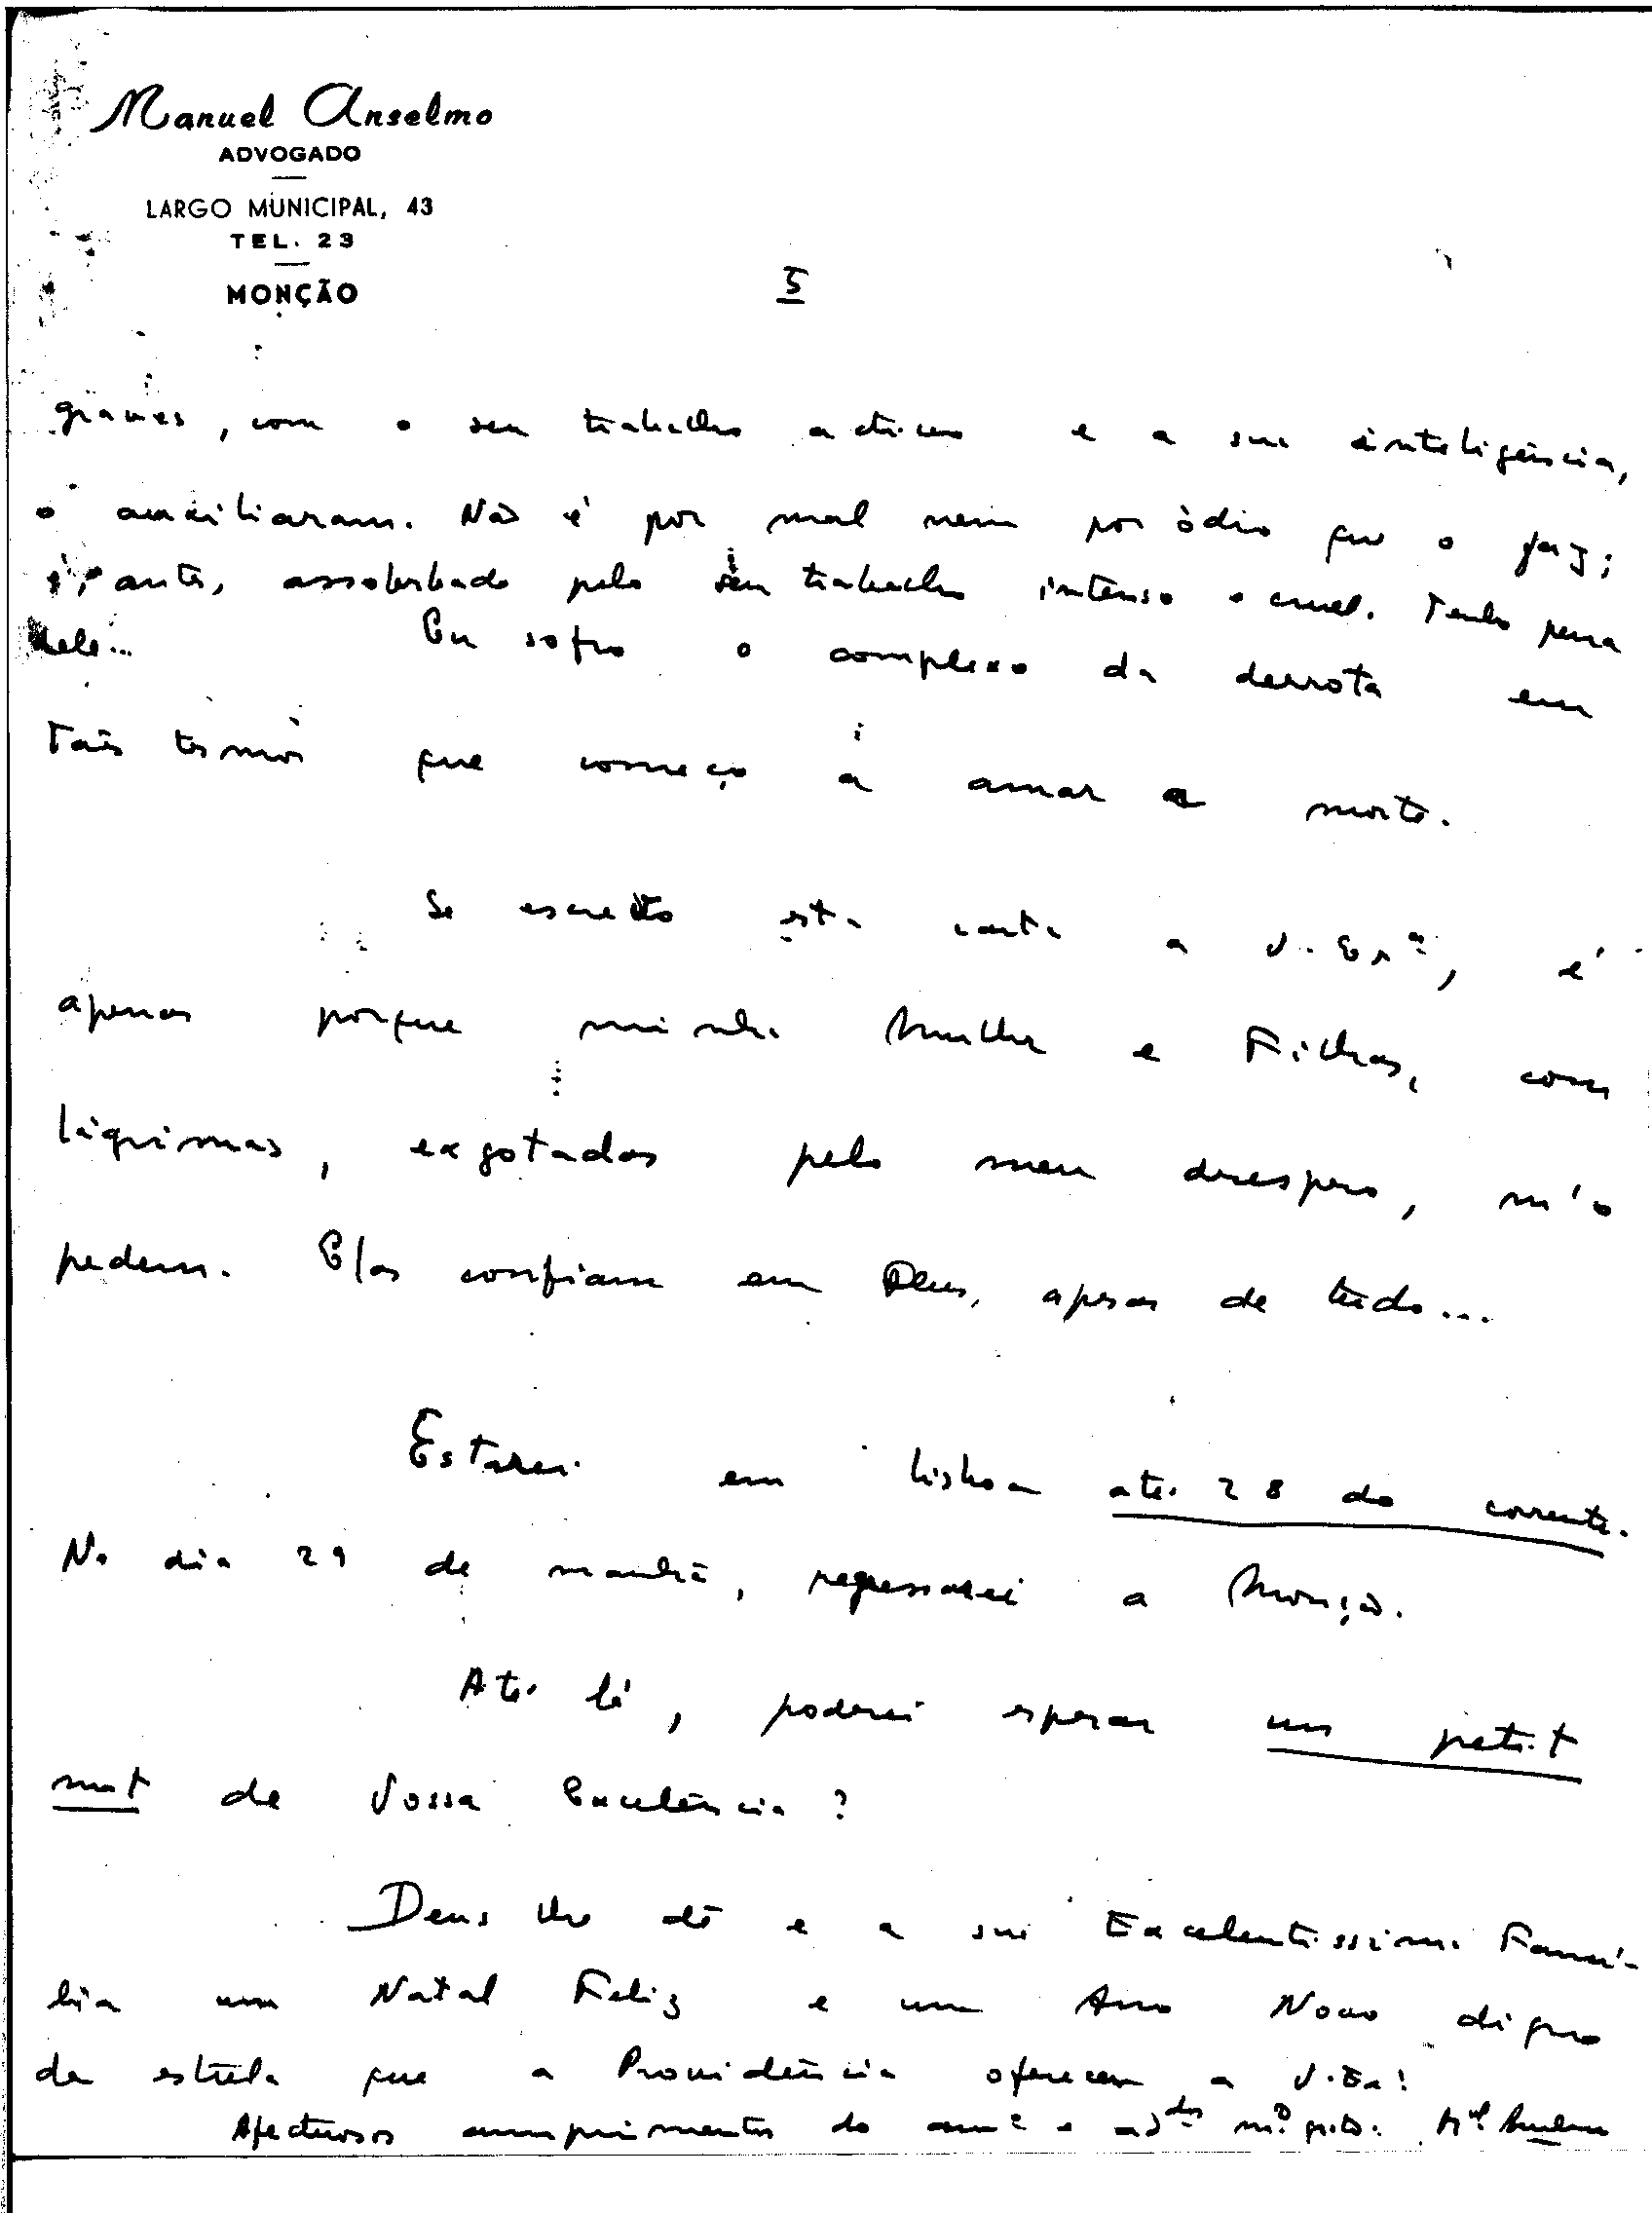 Manuel Anselmo
ADVOGADO
LARGO MUNICIPAL, 43
TEL. 23
MONÇÃO
5
graves, com o seu trabalho activo e a sua inteligência,
o auxiliaram. Não é por mal nem por ódio que o faz;
é, antes, assoberbado pelo seu trabalho intenso e cruel. Tenho pena
dele... Eu sofro o complexo da derrota em
tais termos que começo a amar a morte.
Se escrevo esta carta a V. Exª, é
apenas porque minha Mulher e Filhas, com
lágrimas, exgotadas pelo meu desespero, m'o
pedem. Elas confiam em Deus, apesar de tudo...
Estarei em Lisboa até 28 do corrente.
No dia 29 de manhã, regressarei a Monção.
Até lá, poderei esperar un petit
mot de Vossa Excelência?
Deus lhe dê e a sua Excelentissima Famí-
lia um Natal Feliz e um Ano Novo digno
da estrela que a Providência ofereceu a V. Exª!
Afectuosos cumprimentos do amº e mº